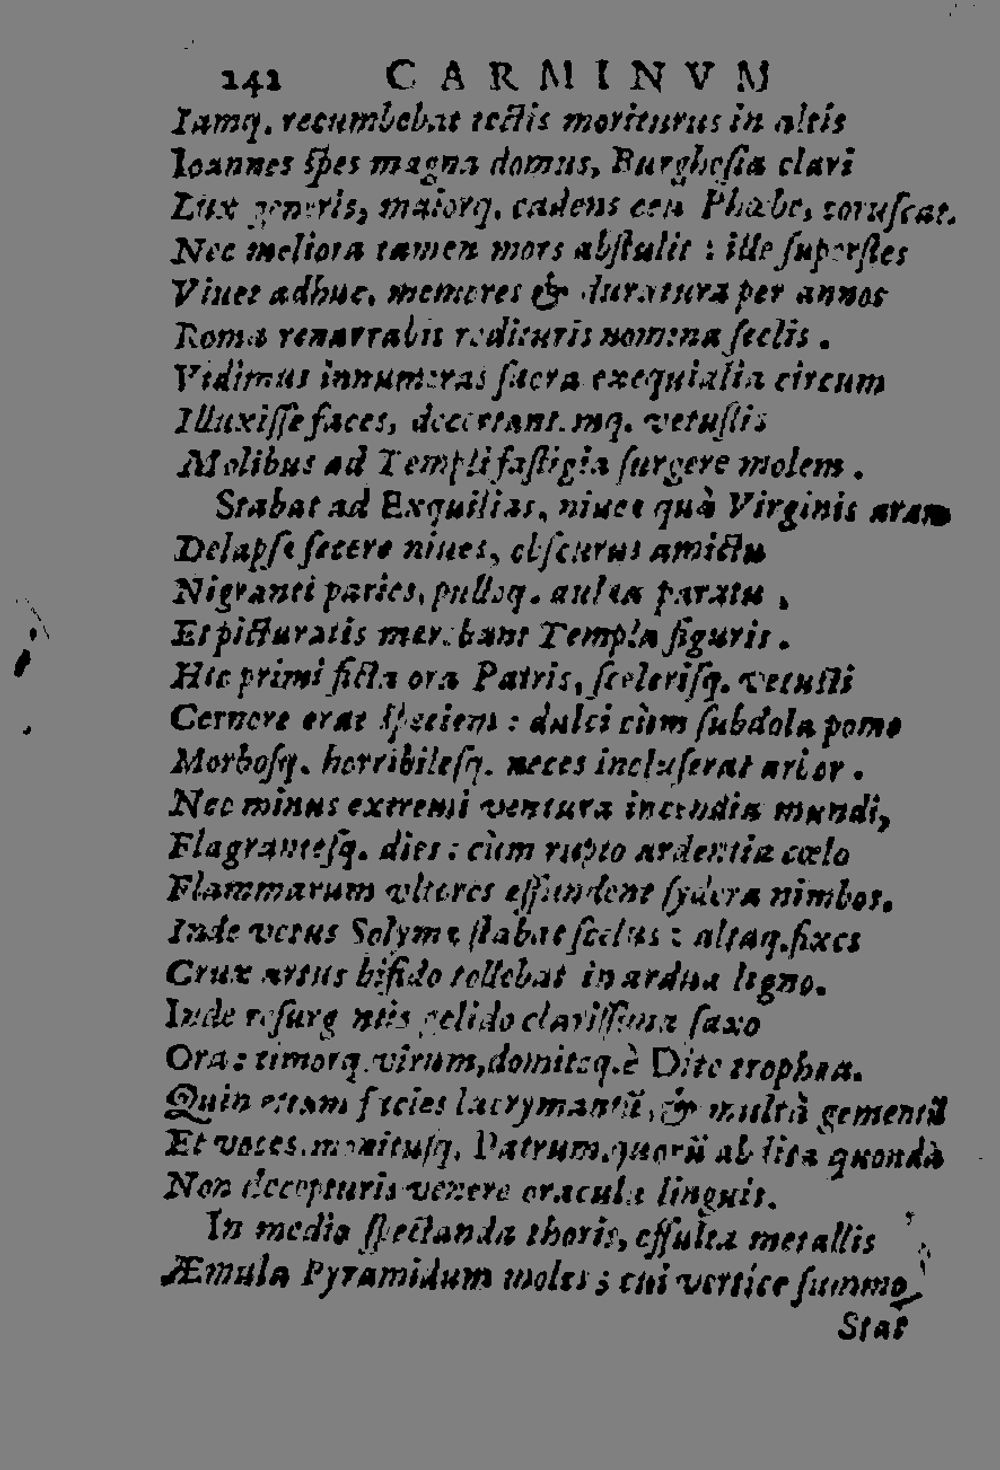 242 CARMINVM
Iamq. recumbebat tectis moriturus in altis
Ioannes spes magna domus, Burghesia clari
Lux generis, maiorq. cadens ceu Phœbe, coruscat.
Nec meliora tamen mors abstulit : ille superstes
Viuet adhuc, memores & duratura per annos
Roma renarrabit redituris nomina seclis.
Vidimus innumeras sacra exequialia circum
Illuxisse faces, decertantemq. vetustis
Molibus ad Templi fastigia surgere molem.
Stabat ad Exquilias, niueæ quà Virginis aram
Delapsæ fecere niues, obscurus amictu
Nigranti paries, pullòq. aulæa paratu,
Et picturatis mærebant Templa figuris.
Hic primi ficta ora Patris, scelerisq. vetusti
Cernere erat speciem : dulci cùm subdola pomo
Morbosq. horribilesq. neces incluserat arbor.
Nec minus extremi ventura incendia mundi,
Flagrantesq. dies : cùm rupto ardentia cœlo
Flammarum vltores effundent sydera nimbos.
Inde vetus Solymæ stabat scelus : altaq. fixos
Crux artus bifido tollebat in ardua ligno.
Inde resurgentis gelido clarissima saxo
Ora : timorq. virum, domitaq. è Dite trophæa.
Quin etiam facies lacrymantũ, & multà gementũ
Et voces, monitusq. Patrum, quorũ ab lita quondã
Non decepturis venere oracula linguis.
In medio spectanda thoris, effulta metallis
Æmula Pyramidum moles ; cui vertice summo
Stat